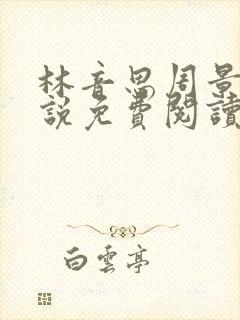 林音恩周景
說免費閱讀
白雲亭